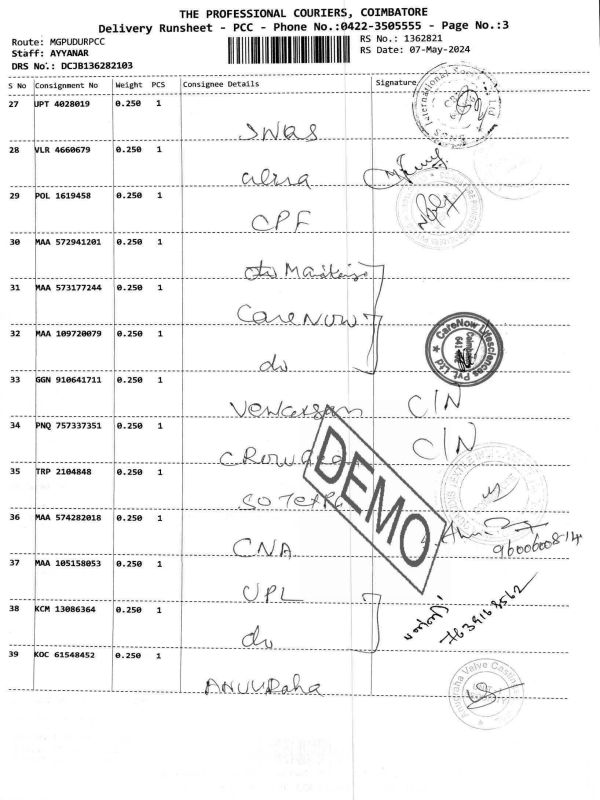 THE PROFESSIONAL COURIERS, COIMBATORE
Delivery Runsheet - PCC - Phone No.:0422-3505555 - Page No.:3
Route: MGPUDURPCC RS No.: 1362821
Staff: AYYANAR RS Date: 07-May-2024
DRS No.: DCJB136282103
S No Consignment No Weight PCS Consignee Details Signature
27 UPT 4028019 0.250 1
SWAS
28 VLR 4660679 0.250 1
29 POL 1619458 0.250 1
CPF
30 MAA 572941201 0.250 1
31 MAA 573177244 0.250 1
CareNow
CareNow Lifesciences Pvt Ltd
32 MAA 109720079 0.250 1
do
33 GGN 910641711 0.250 1
C/N
34 PNQ 757337351 0.250 1
C/N
35 TRP 2104848 0.250 1
DEMO
36 MAA 574282018 0.250 1
CNA
9600600814
37 MAA 105158053 0.250 1
UPL
38 KCM 13086364 0.250 1
do
7639168562
39 KOC 61548452 0.250 1
ANUURaha
Anugraha Valve Castings